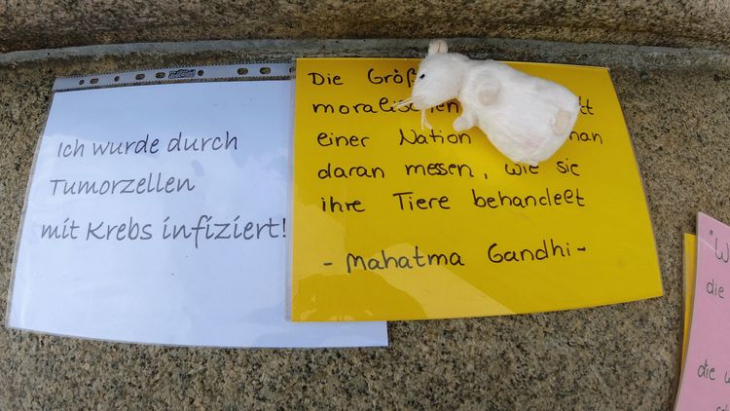 Ich wurde durch
Tumorzellen
mit Krebs infiziert!
Die Größ
moralischen
einer Nation
daran messen, wie sie
ihre Tiere behandelt
- Mahatma Gandhi -
die
die